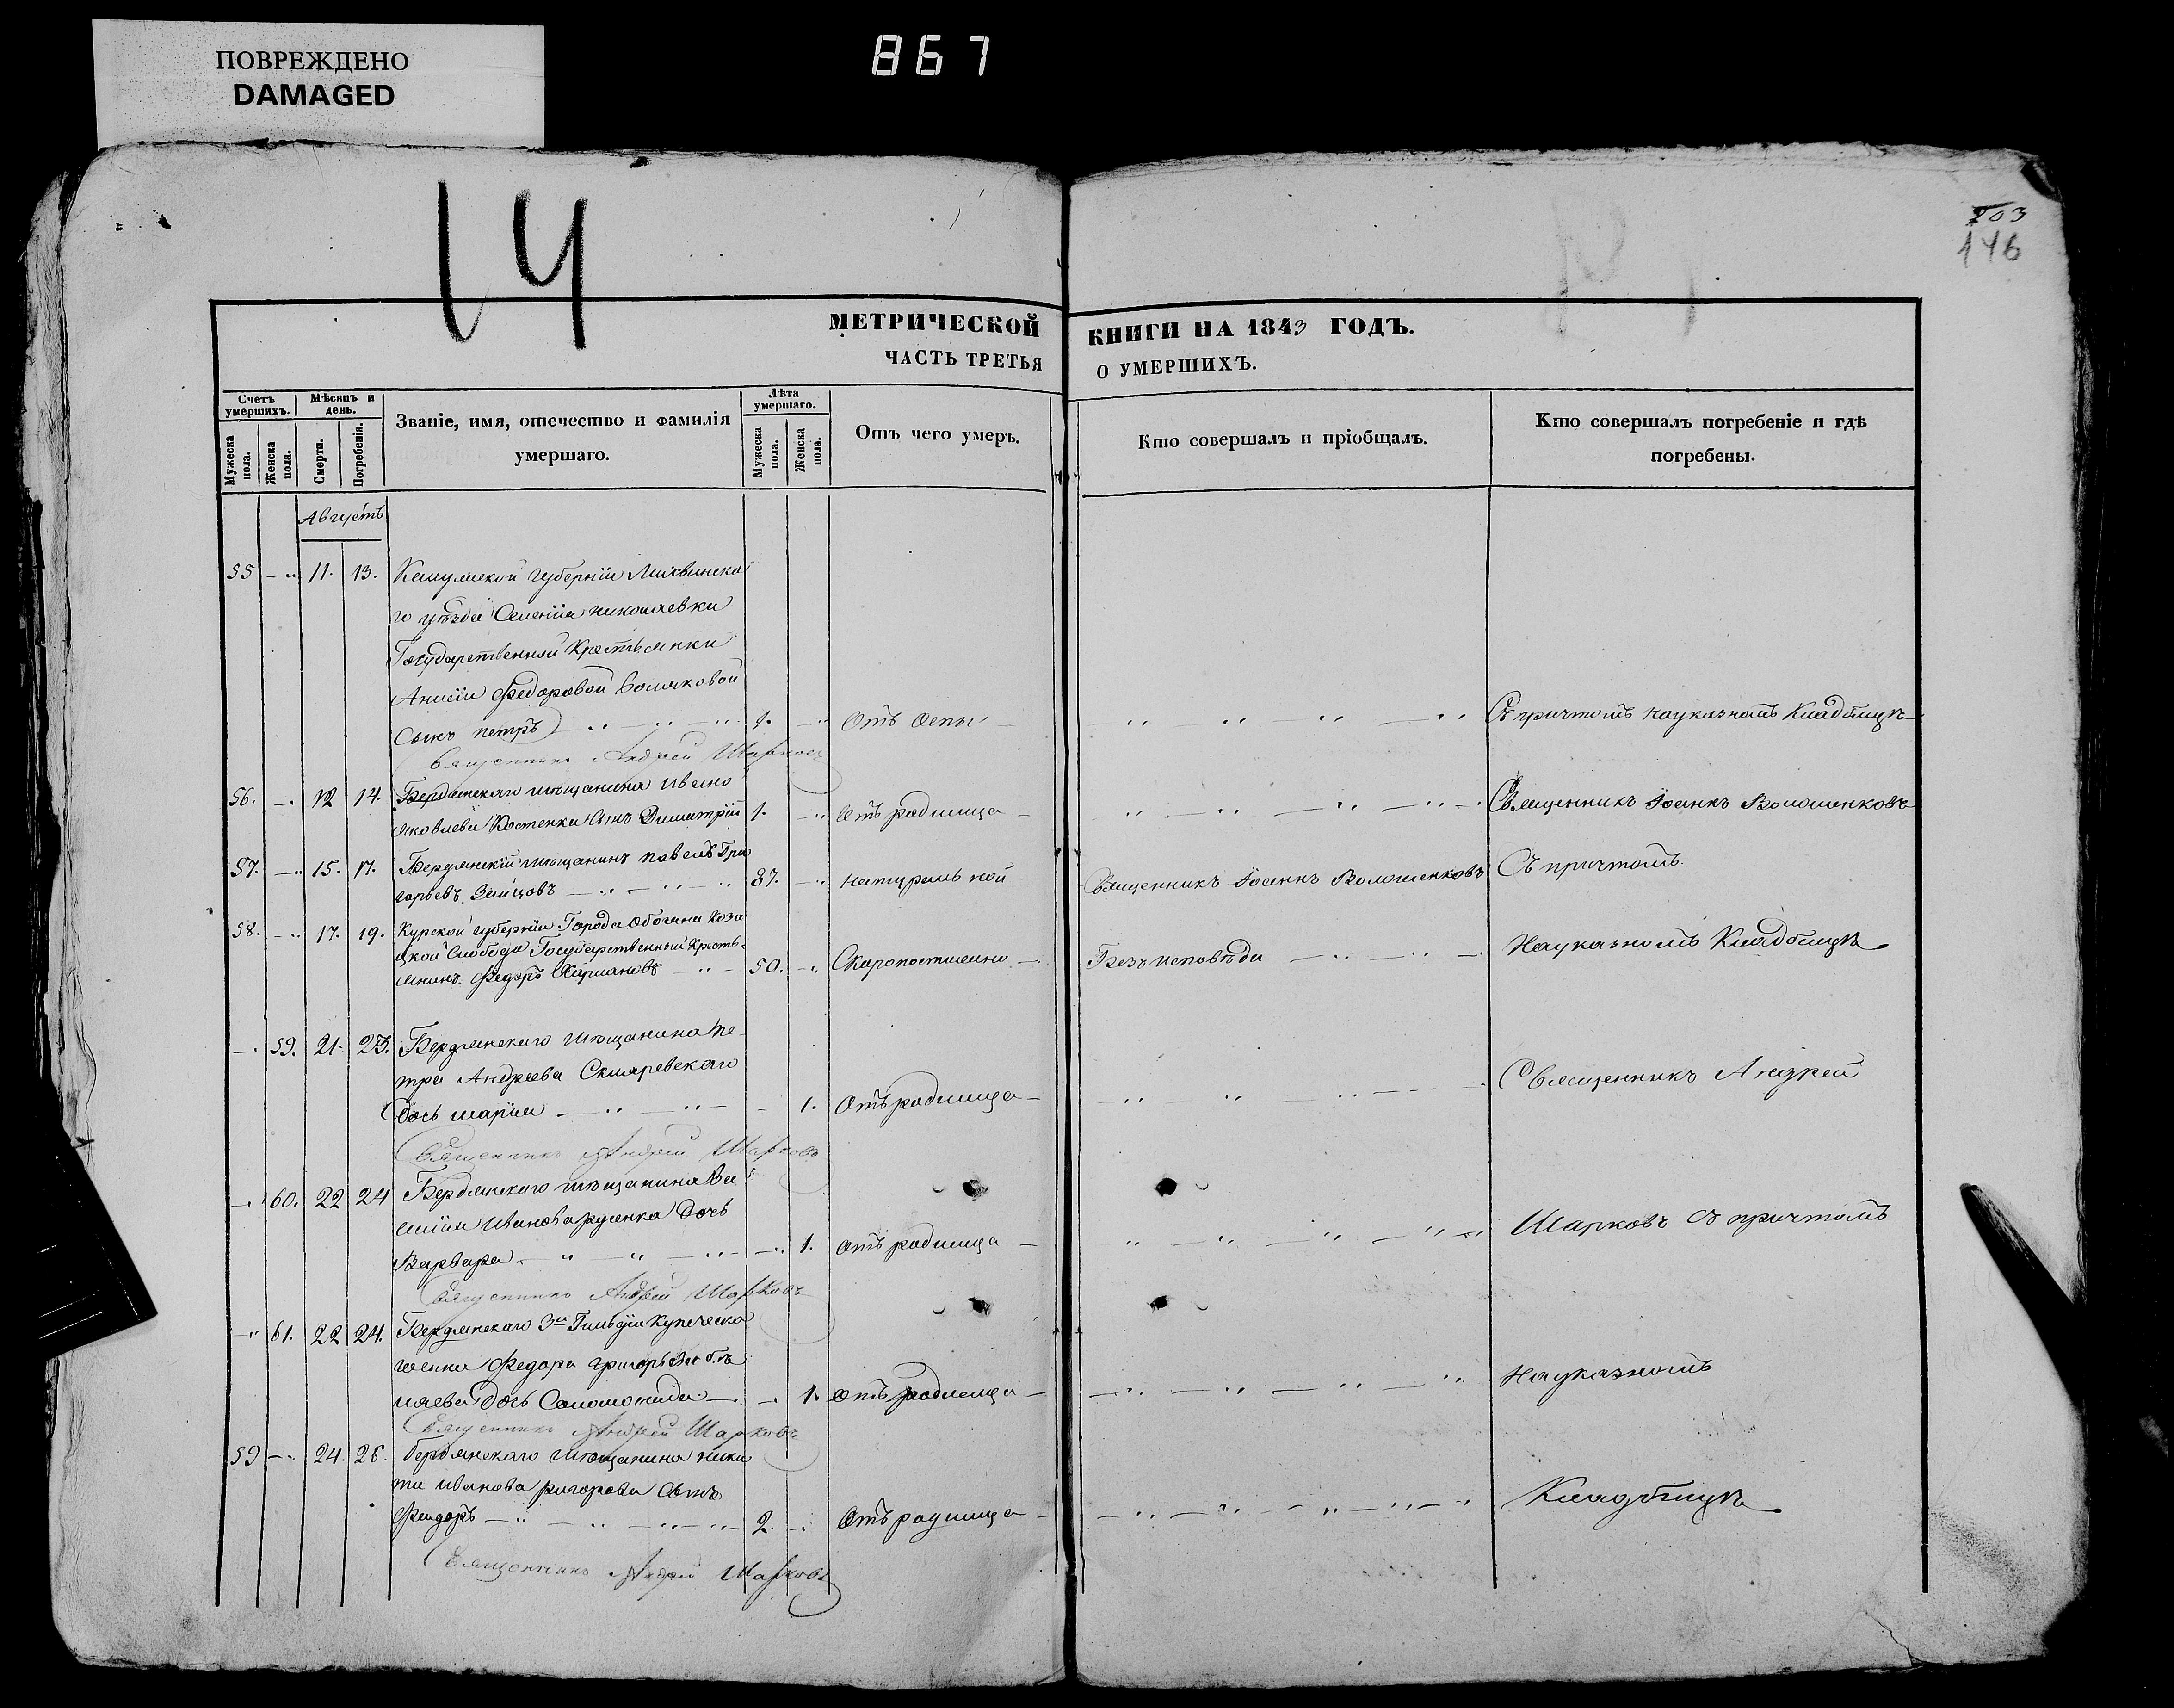 ПОВРЕЖДЕНО
DAMAGED
867
14
203
146
МЕТРИЧЕСКОЙ КНИГИ НА 1843 ГОДЪ.
ЧАСТЬ ТРЕТЬЯ О УМЕРШИХЪ.
Счетъ умершихъ.
Мужеска пола.
Женска пола.
Мѣсяцъ и день.
Смерти.
Погребенія.
Званіе, имя, отечество и фамилія умершаго.
Лѣта умершаго.
Мужеска пола.
Женска пола.
Отъ чего умеръ.
Кто совершалъ и пріобщалъ.
Кто совершалъ погребеніе и гдѣ погребены.
Августъ
55 11. 13. Калужской губерніи Лихвинска
го уѣзда Селенія Николаевки
Государственной Крестьянки
Анисіи Федоровой
Сынъ Петръ 1. Отъ оспы Съ причтомъ на указномъ Кладбищѣ
Священникъ Андрей Шарковъ
56. 12 14. Бердянскаго мѣщанина Ивана
Яковлева Костенка Сынъ Димитрій 1. Отъ родимца Священникъ Іоаннъ Волошенковъ
57. 15. 17. Бердянскій мѣщанинъ Павелъ Гри
горьевъ Заицовъ 87. натуральной Священникъ Іоаннъ Волошенковъ Съ причтомъ.
58. 17. 19. Курской губерніи Города Обояна Каза
цкой Слободы Государственный Кресть
янинъ Федоръ 50. Скоропостижно Безъ исповѣди На указномъ Кладбищѣ
59. 21. 23. Бердянскаго мѣщанина Пе
тра Андреева Скляревскаго
дочь Марія 1. Отъ родимца Священникъ Андрей
Священникъ Андрей Шарковъ
60. 22 24 Бердянскаго мѣщанина Ва
силія Иванова дочь
Варвара 1. Отъ родимца Шарковъ съ причтомъ
Священникъ Андрей Шарковъ
61. 22 24. Бердянскаго 3й Гильдіи Купеческа
Федора Григорьева
дочь Соломонида 1. Отъ родимца На указномъ
Священникъ Андрей Шарковъ
59 24. 26. Бердянскаго мѣщанина Ники
ты Иванова Сынъ
Федоръ 2. Отъ родимца Кладбищѣ
Священникъ Андрей Шарковъ